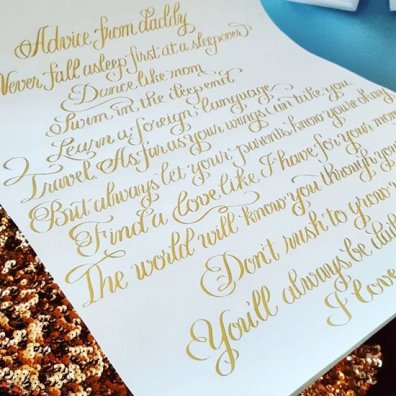 Advice from daddy
Never fall asleep first at a sleepover,
Dance like mom
Swim in the deep end,
Learn a foreign language
Travel. As far as your wings can take you
But always let your parents know you're okay
Find a love like I have for your mom
The world will know you through your
Don't rush to grow
You'll always be
I love